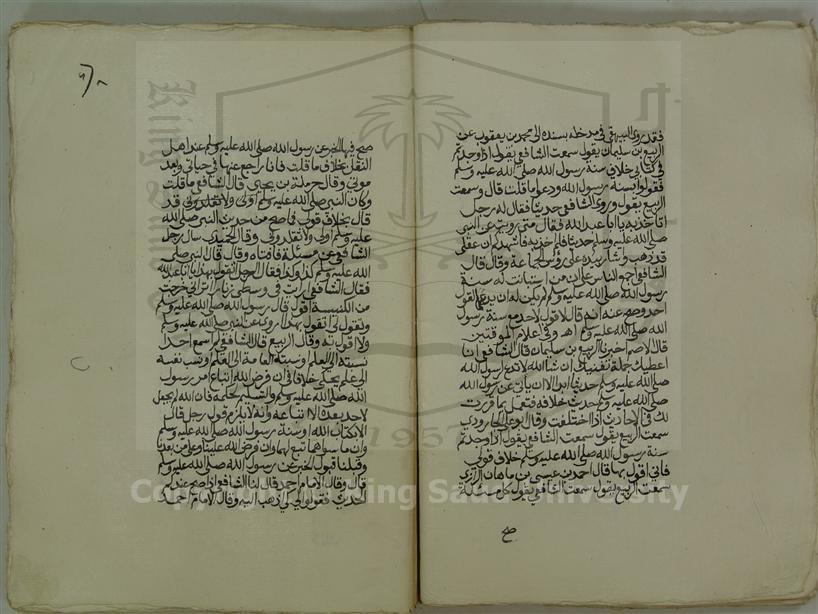 فقد روى البيهقي في مدخله بسنده الى محمد بن يعقوب عن
الربيع بن سليمان يقول سمعت الشافعي يقول اذا وجدتم
في كتابي خلاف سنة رسول الله صلى الله عليه وسلم
فقولوا بسنة رسول الله ودعوا ما قلت قال وسمعت
الربيع يقول وروى الشافعي حديثا فقال له رجل
اتاخذ به يا ابا عبد الله فقال متى رويت عن النبي
صلى الله عليه وسلم حديثا فلم اخذ به فاشهدكم ان عقلي
قد ذهب واشار بيده على رؤس الجماعة وقال قال
الشافعي اجمع الناس على ان من استبانت له سنة
رسول الله صلى الله عليه وسلم لم يكن له ان يدعها لقول
احد وصح عنه انه قال لا قول لاحد مع سنة رسول
الله صلى الله عليه وسلم اهـ وفي اعلام الموقعين
قال الاصم اخبرنا الربيع بن سليمان قال الشافعي انا
اعطيك جملة تغنيك ان شا الله لا تدع لرسول الله
صلى الله عليه وسلم حديثا ابدا الا ان ياتي عن رسول الله
صلى الله عليه وسلم حديث خلافه فتعمل بما قررت
لك في الاحاديث اذا اختلفت وقال ابو علي الجارودي
سمعت الربيع يقول سمعت الشافعي يقول اذا وجدتم
سنة رسول الله صلى الله عليه وسلم خلاف قولي
فاني اقول بها قال احمد بن عيسى بن ماهان الرازي
سمعت الربيع يقول سمعت الشافعي يقول كل مسئلة
صح
صح فيها الخبر عن رسول الله صلى الله عليه وسلم عند اهل
النقل بخلاف ما قلت فانا راجع عنها في حياتي وبعد
موتي وقال حرملة بن يحيى قال الشافعي ما قلت
وكان النبي صلى الله عليه وسلم اولى ولا تقلدوني قد
قال بخلاف قولي فما صح من حديث النبي صلى الله
عليه وسلم اولى ولا تقلدوني وقال الحميدي سال رجل
الشافعي عن مسئلة فافتاه وقال قال النبي صلى
الله عليه وسلم كذا وكذا فقال الرجل اتقول بهذا يا ابا عبد الله
فقال الشافعي ارايت في وسطي زنارا اتراني خرجت
من الكنيسة اقول قال رسول الله صلى الله عليه وسلم
وتقول لي اتقول بهذا اروى عن النبي صلى الله عليه وسلم
ولا اقول به وقال الربيع قال الشافعي لم اسمع احدا
نسبته الى العلم او نسبته العامة الى العلم او نسب نفسه
الى علم يحكي خلافا في ان فرض الله اتباع امر رسول
الله صلى الله عليه وسلم والتسليم لحكمه فان الله لم يجعل
لاحد بعده الا اتباعه وانه لا يلزم قول رجل قال
الا بكتاب الله او سنة رسول الله صلى الله عليه وسلم
وان ما سواهما تبع لهما وان فرض الله علينا وعلى من بعدنا
وقبلنا قبول الخبر عن رسول الله صلى الله عليه وسلم
قال وقال الامام احمد قال لنا الشافعي اذا صح عندكم
الحديث فقولوا لي كي اذهب اليه وقال الامام احمد
King Saud University
1957
Copyright © King Saud University